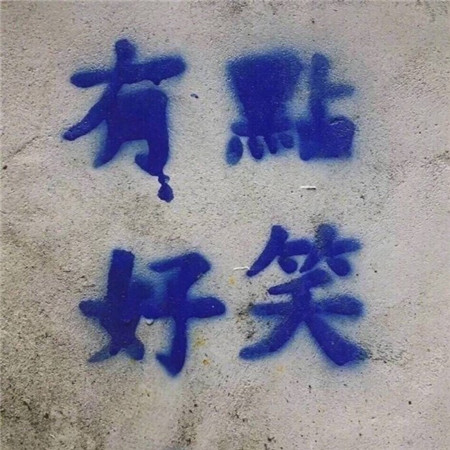 有點
好笑